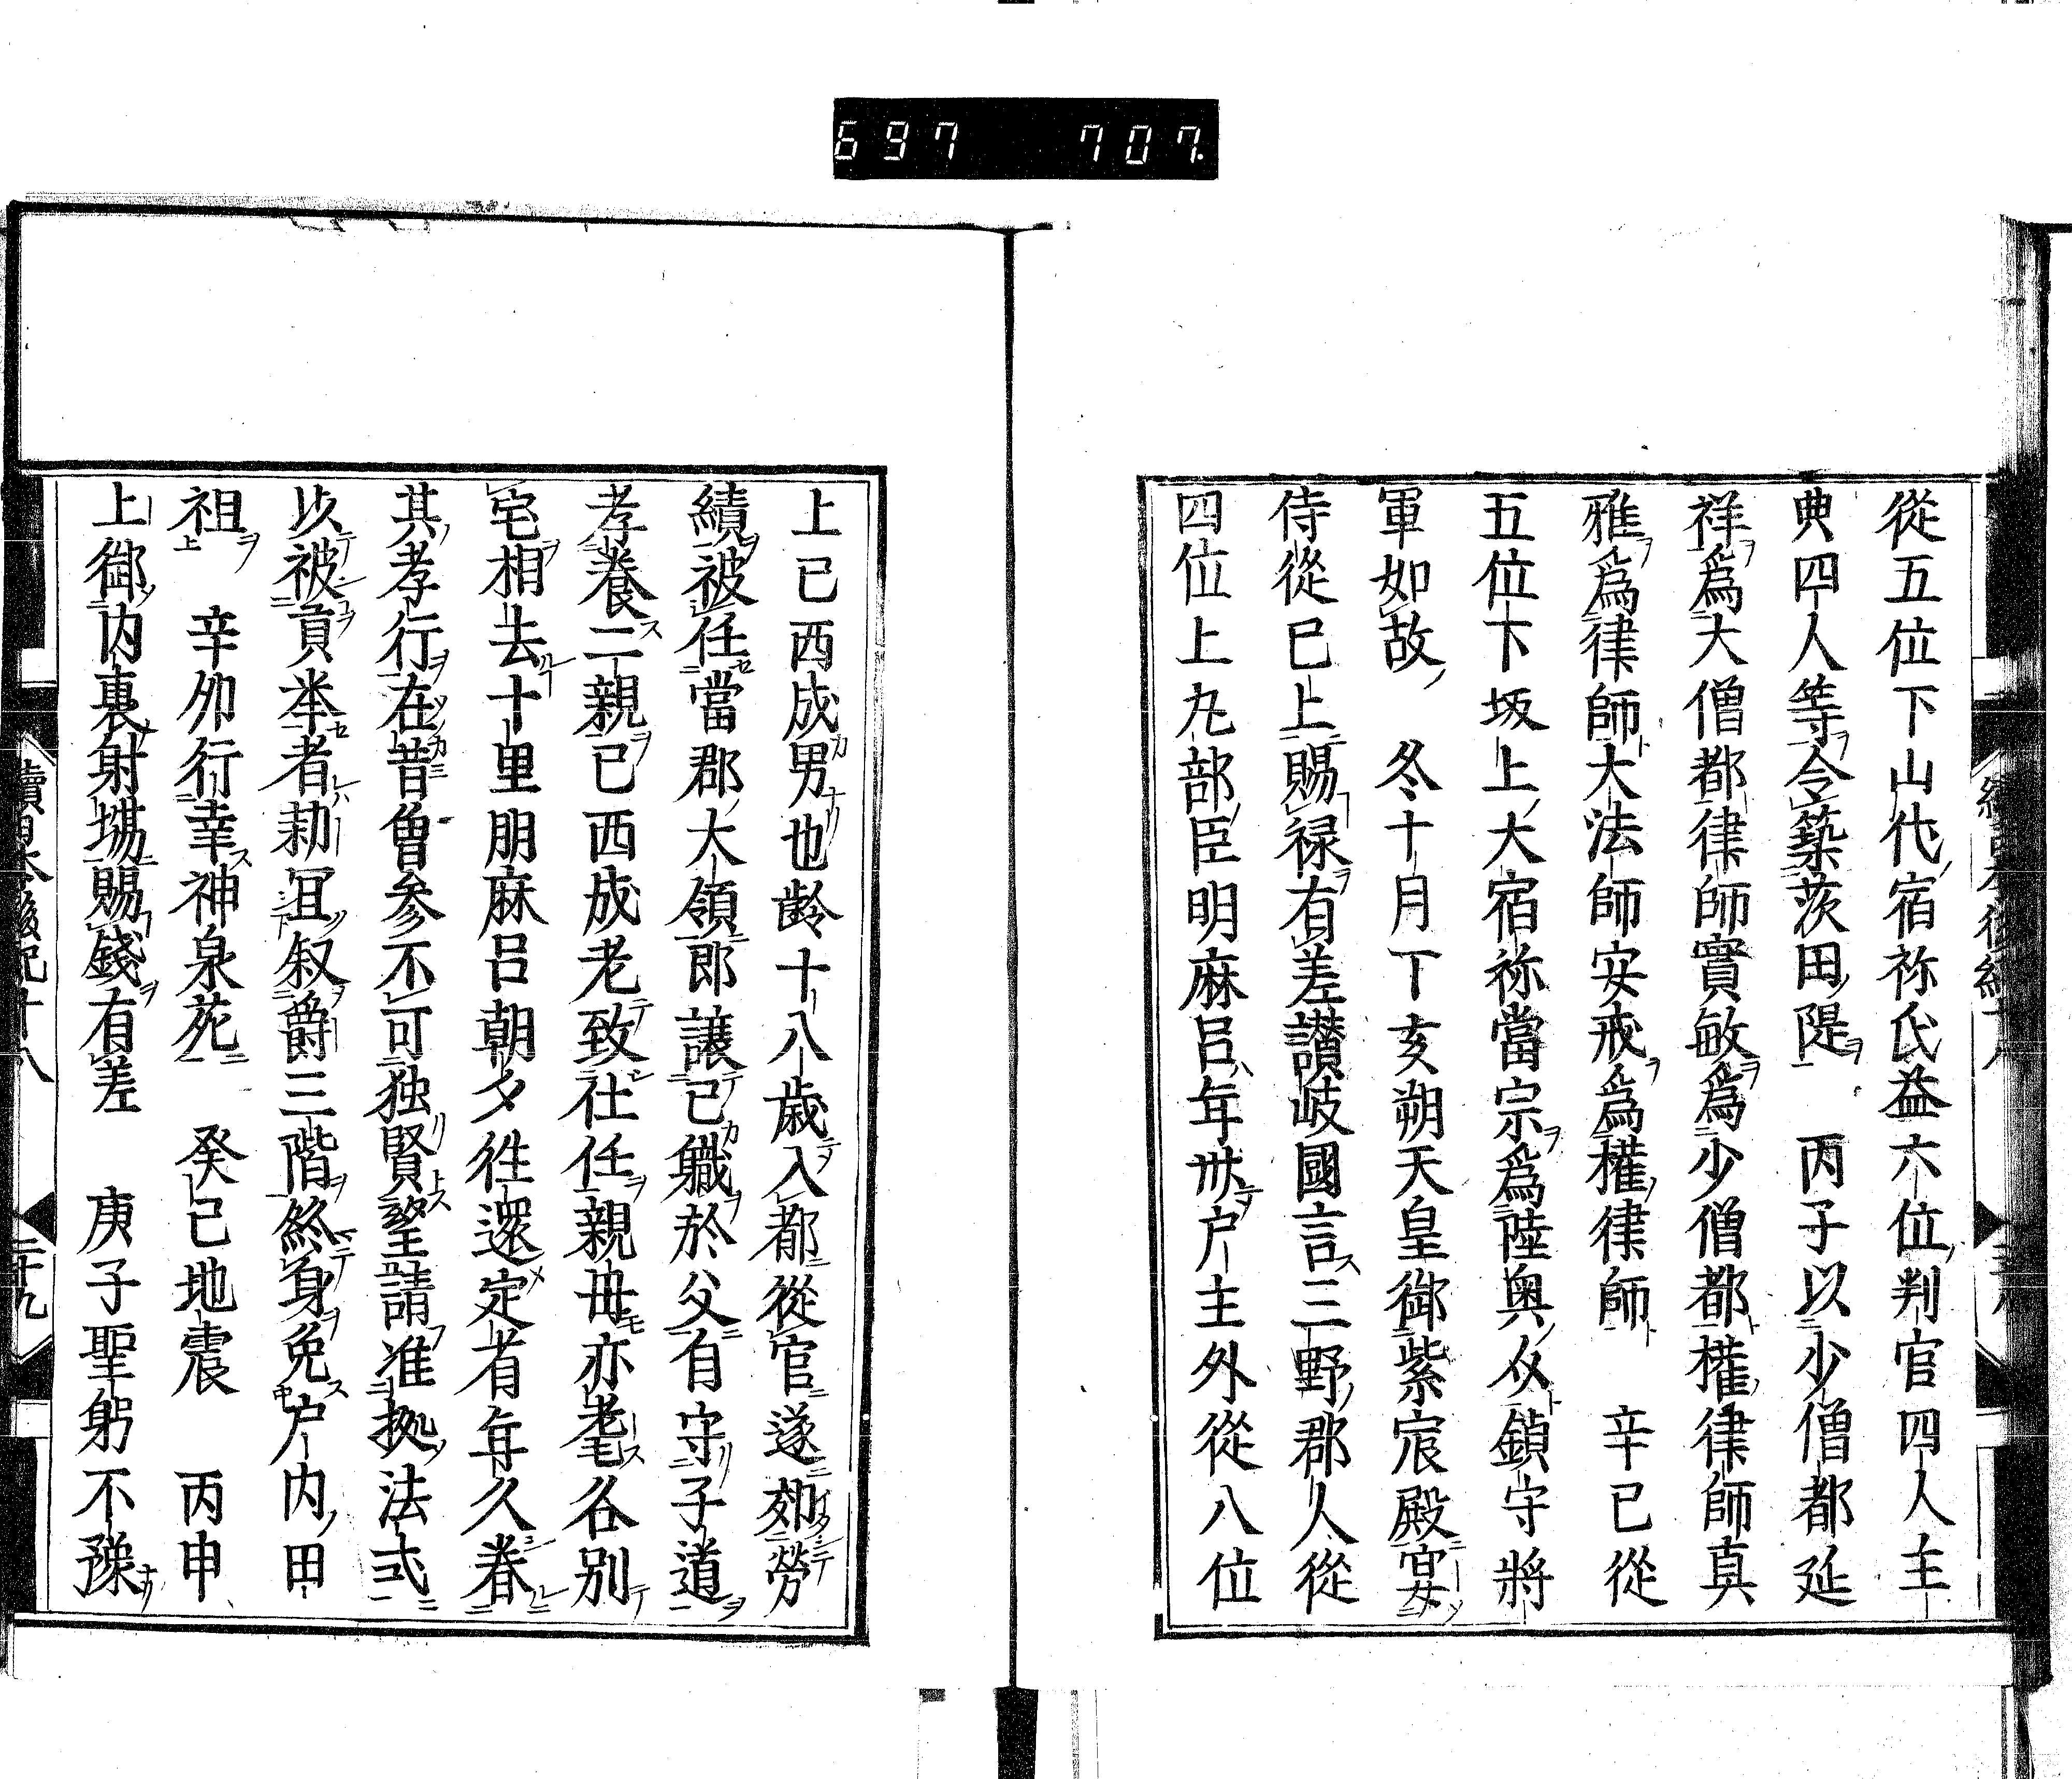 697 707.
從五位下山代宿祢氏益六位判官四人主
典四人等令築茨田隄 丙子以少僧都延
祥爲大僧都律師實敏爲少僧都權律師真
雅爲律師大法師安戒爲權律師 辛巳從
五位下坂上大宿祢當宗爲陸奥从鎮守將
軍如故 冬十月丁亥朔天皇御紫宸殿宴
侍從已上賜禄有差讃岐國言三野郡人從
四位上丸部臣明麻吕年卅户主外從八位
上已西成男也齡十八歳入都從官遂効勞
績被任當郡大領即讓己職於父自守子道
孝養二親已西成老致仕任親毋亦耄各别
宅相去十里朋麻吕朝夕徃還定省年久眷
其孝行在昔曾参不可独賢望請准拠法式
以被貢举者勅冝叙爵三階終身免户内田
祖 辛夘行幸神泉苑 癸巳地震 丙申
上御内裏射場賜錢有差 庚子聖躬不豫
續日本後紀十八 二十九